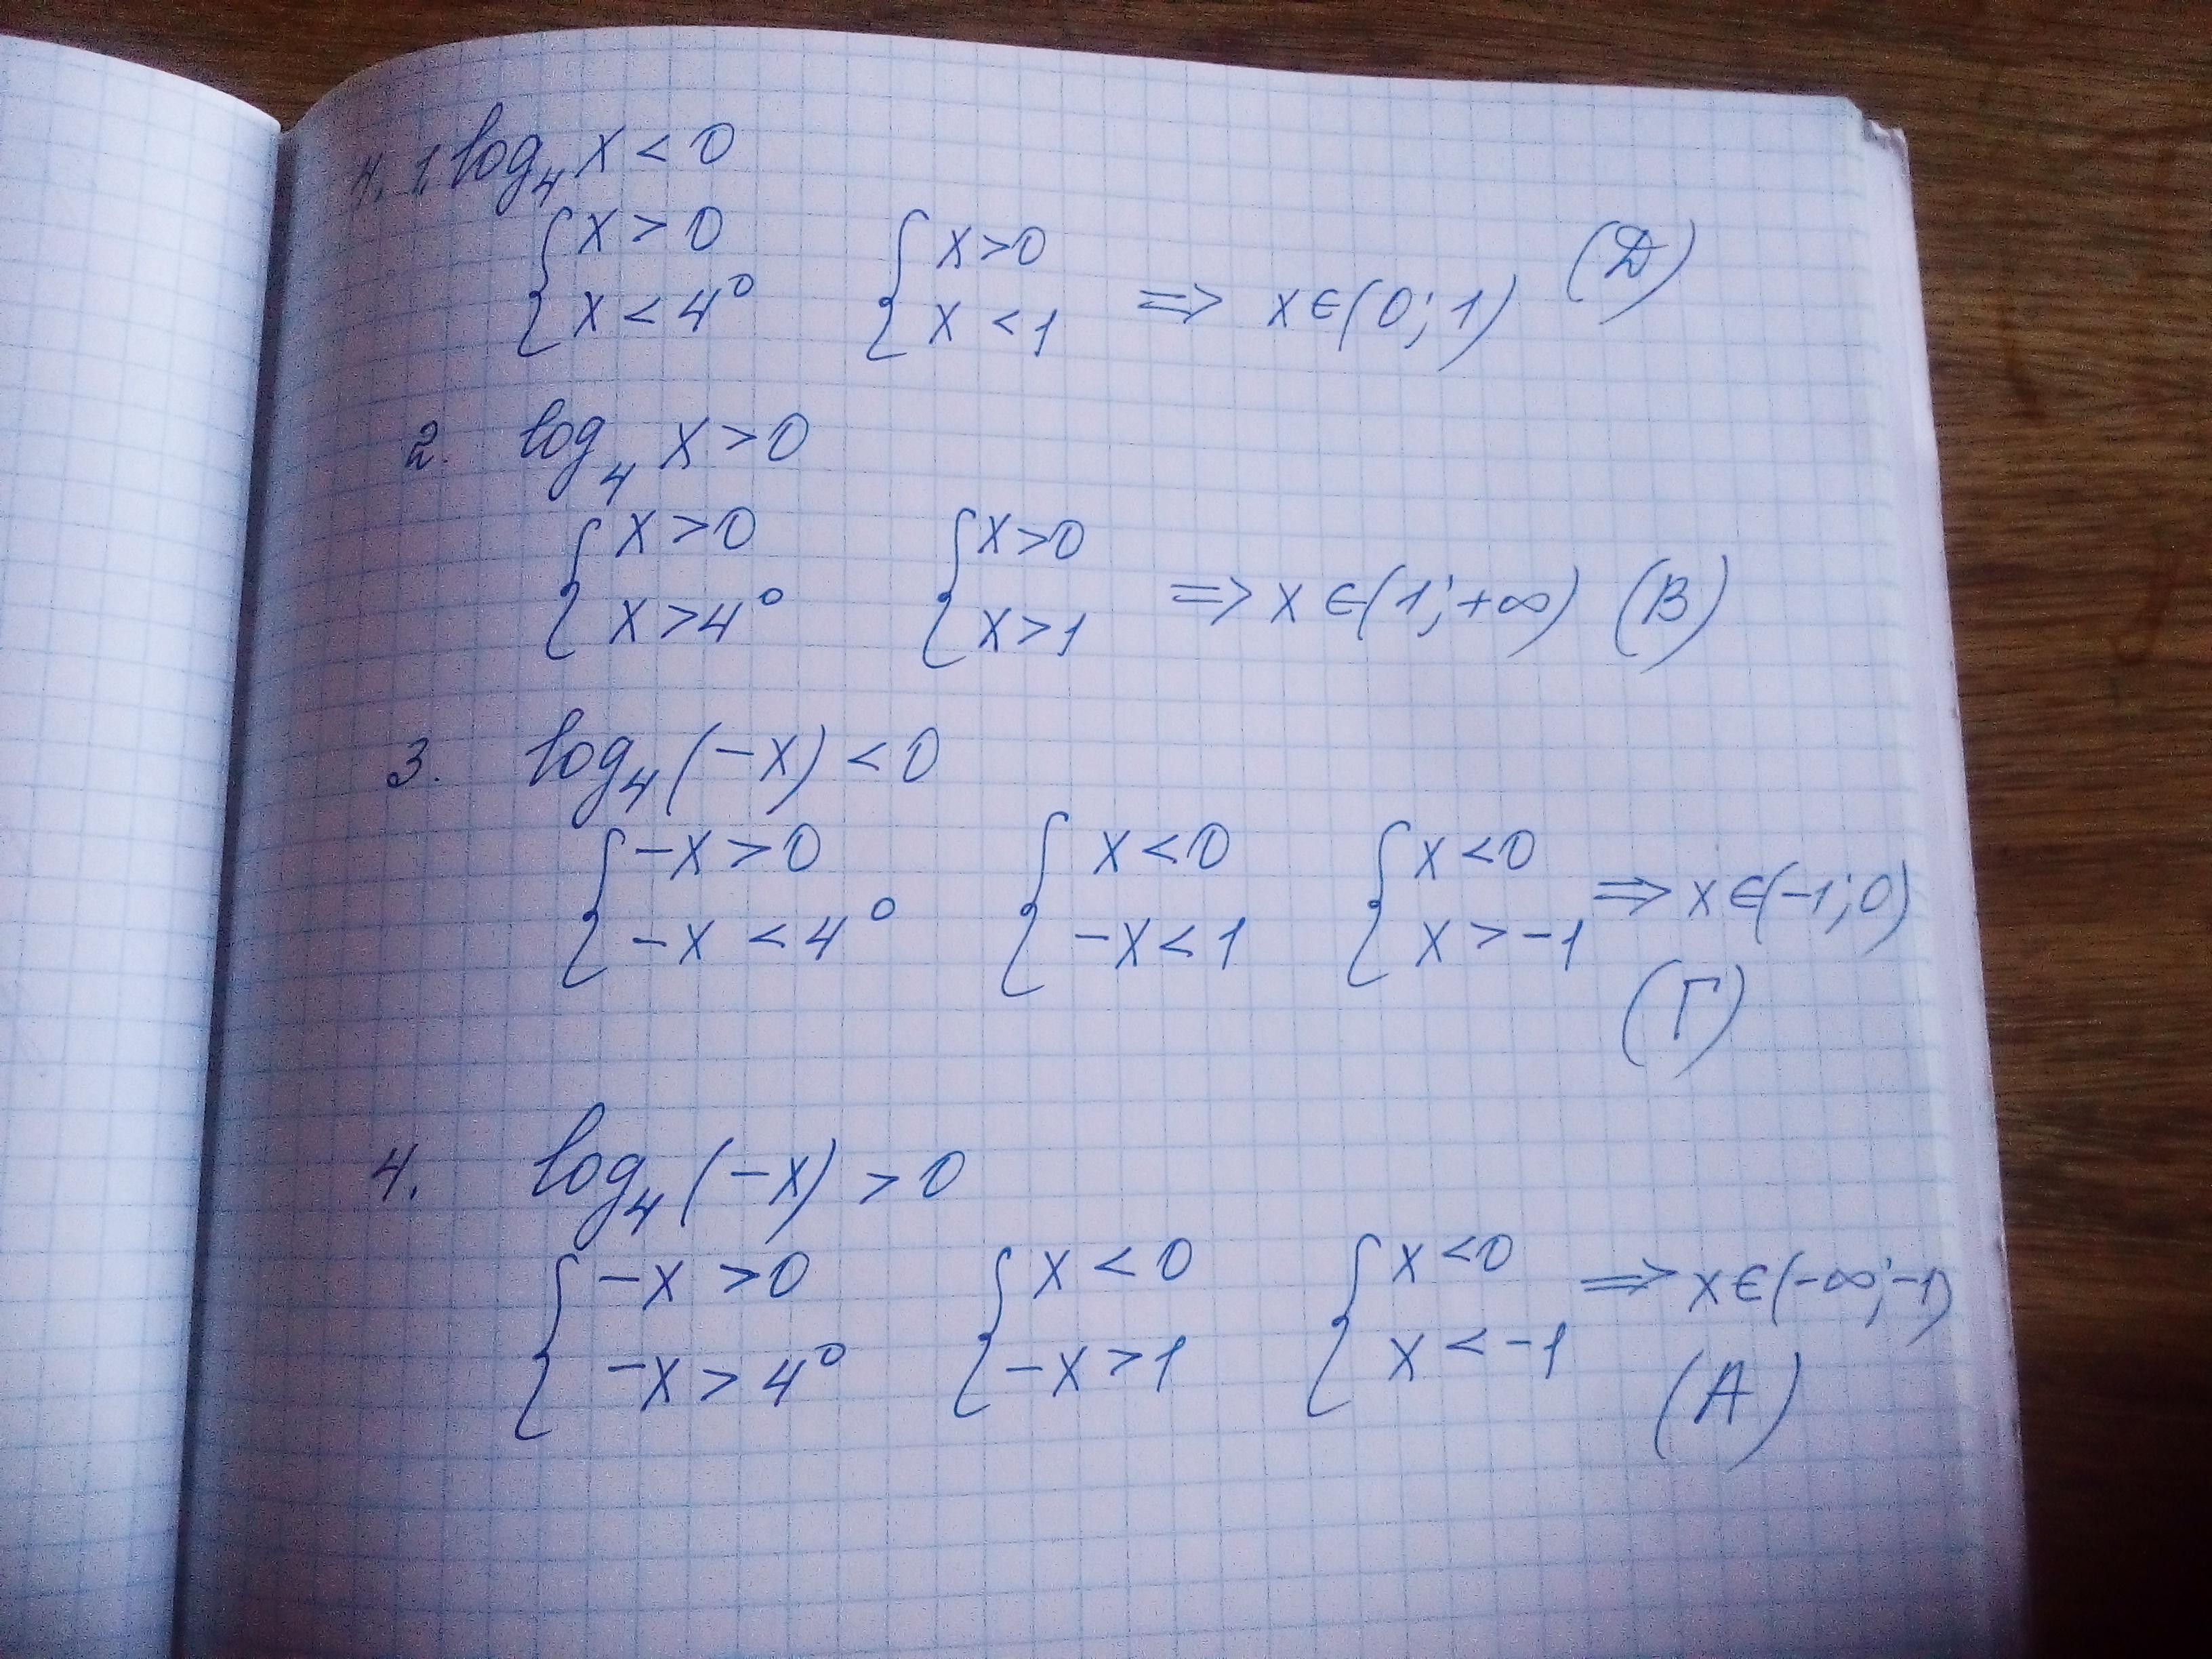 4. 1. log₄ x < 0
{ x > 0 { x > 0
{ x < 4⁰ { x < 1 => x ∈ (0; 1) (Д)
2. log₄ x > 0
{ x > 0 { x > 0
{ x > 4⁰ { x > 1 => x ∈ (1; +∞) (В)
3. log₄ (-x) < 0
{ -x > 0 { x < 0 { x < 0
{ -x < 4⁰ { -x < 1 { x > -1 => x ∈ (-1; 0)
(Г)
4. log₄ (-x) > 0
{ -x > 0 { x < 0 { x < 0 => x ∈ (-∞; -1)
{ -x > 4⁰ { -x > 1 { x < -1
(А)